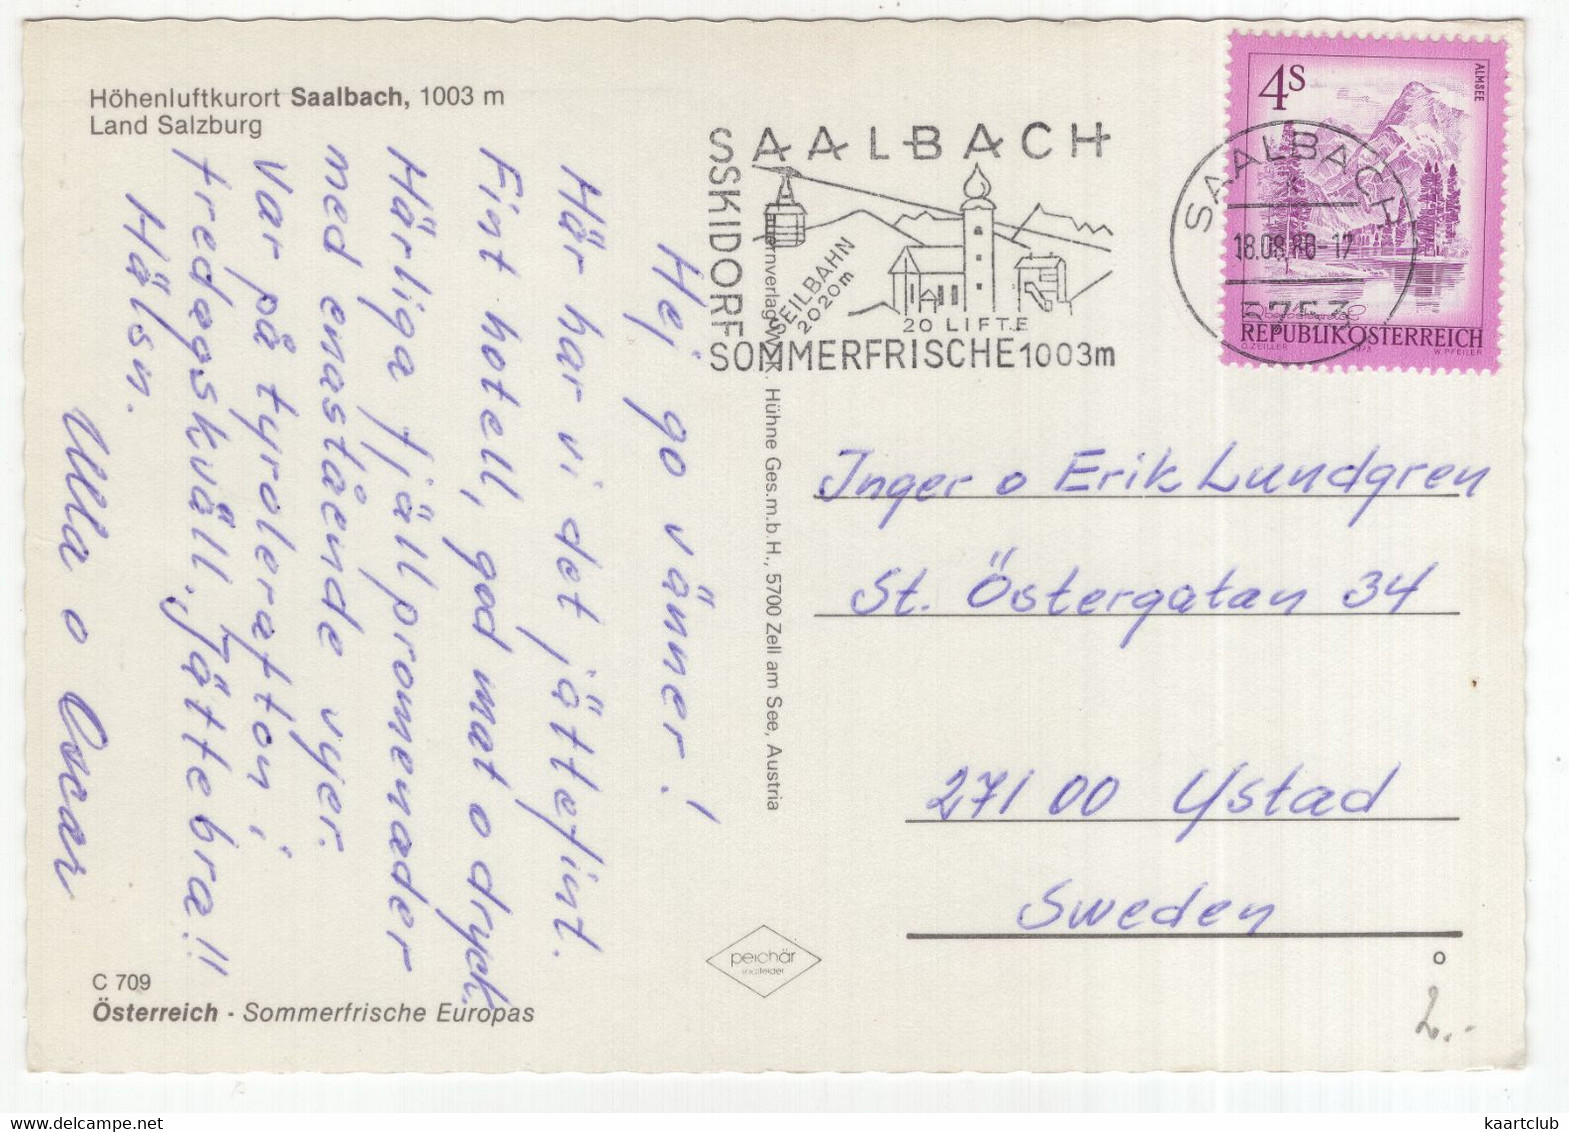 Höhenluftkurort Saalbach, 1003 m
Land Salzburg
Hej go vänner!
Här har vi det jättefint.
Fint hotell, god mat o dryck.
Härliga fjällpromenader
med enastående vyer.
Var på tyrolerafton i
fredagskväll. Jättebra!!
Hälsn.
Ulla o Oscar
C 709
Österreich - Sommerfrische Europas
Hühne Ges.m.b.H., 5700 Zell am See, Austria
peichär
SAALBACH
SSKIDORF
SEILBAHN
2020m
20 LIFTE
SOMMERFRISCHE 1003m
SAALBACH
18.08.80-17
5753
4S
ALMSEE
REPUBLIK ÖSTERREICH
O. ZEILLER
W. PFEILER
Inger o Erik Lundgren
St. Östergatan 34
27100 Ystad
Sweden
2.-
kaartclub